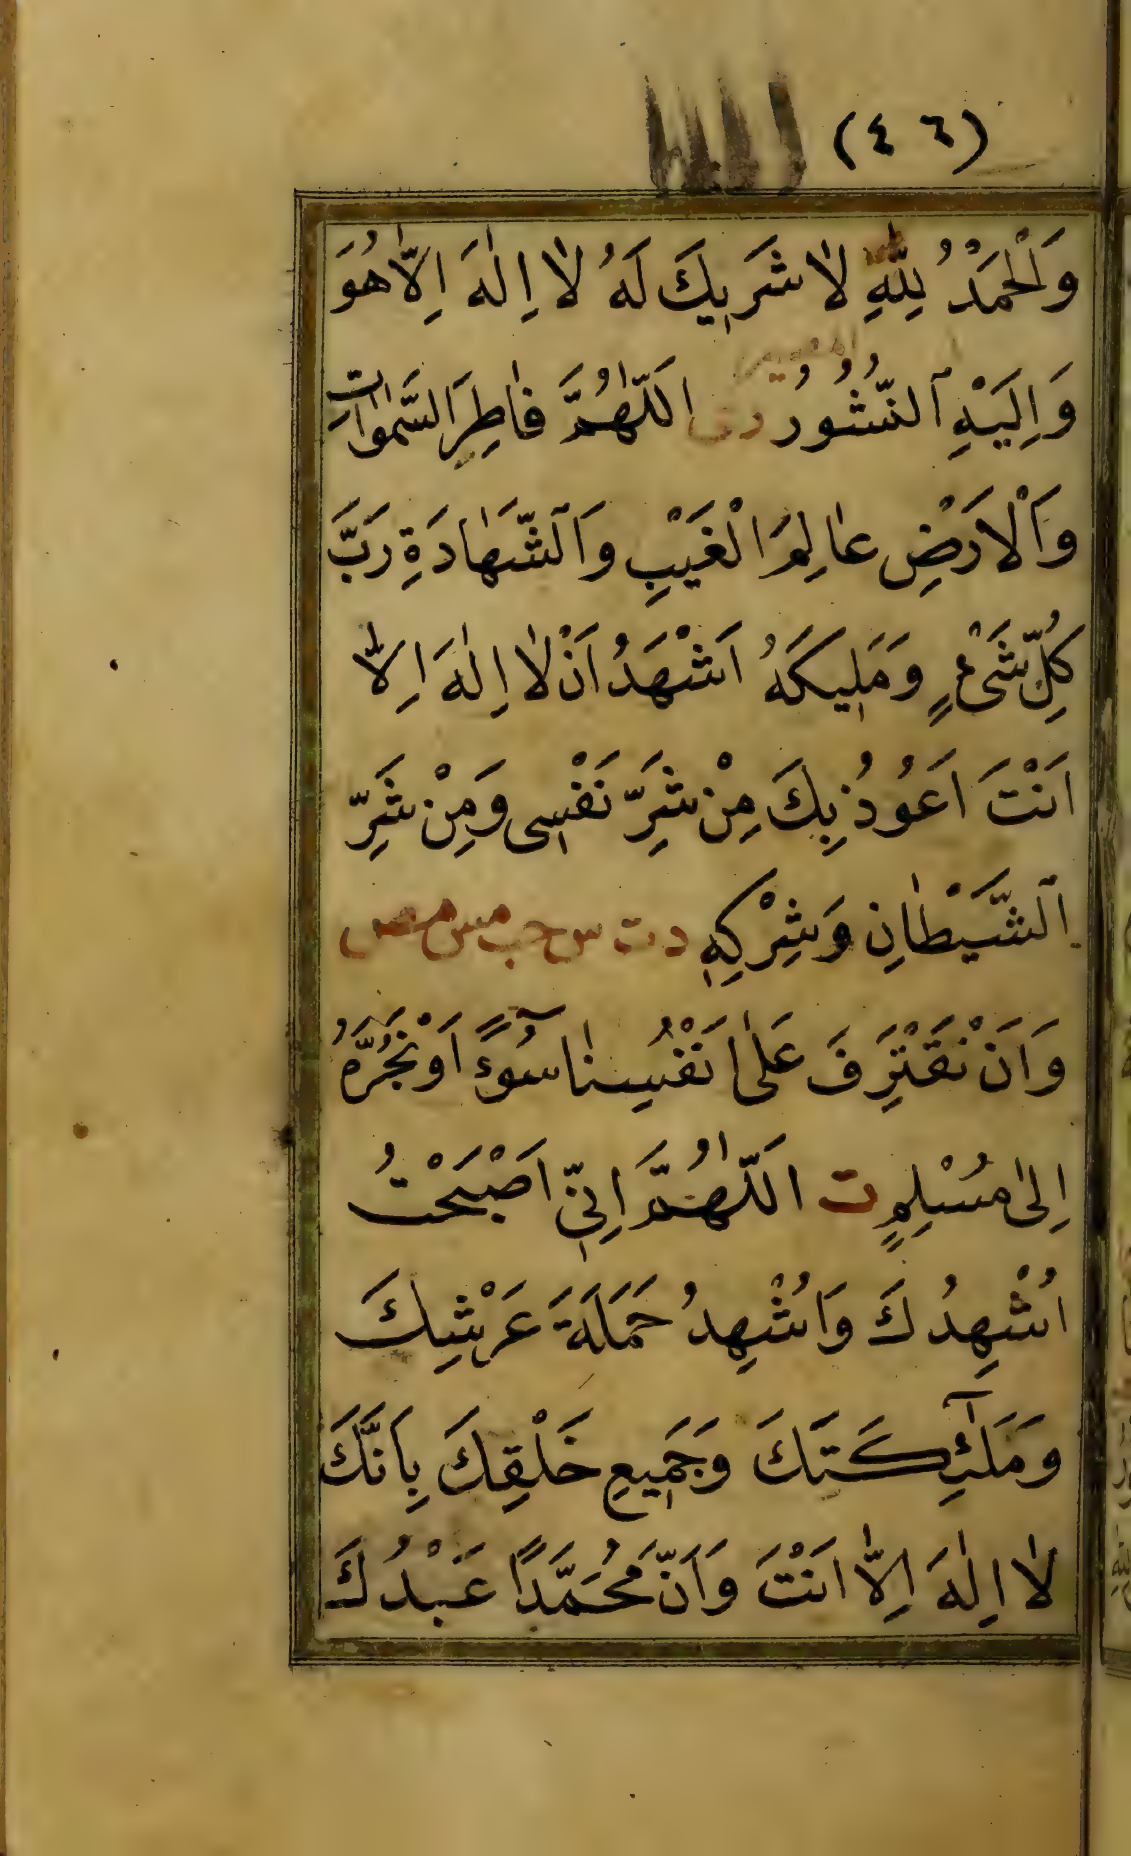 (٤٦)
وَالْحَمْدُ لِلّٰهِ لَا شَرِيكَ لَهُ لَا اِلٰهَ اِلَّا هُوَ
وَاِلَيْهِ النُّشُورُ اَللّٰهُمَّ فَاطِرَ السَّمٰوَاتِ
وَالْاَرْضِ عَالِمَ الْغَيْبِ وَالشَّهَادَةِ رَبَّ
كُلِّ شَىْءٍ وَمَلِيكَهُ اَشْهَدُ اَنْ لَا اِلٰهَ اِلَّا
اَنْتَ اَعُوذُ بِكَ مِنْ شَرِّ نَفْسِى وَمِنْ شَرِّ
الشَّيْطَانِ وَشِرْكِهِ د ت س حب مس مص
وَاَنْ نَقْتَرِفَ عَلٰى اَنْفُسِنَا سُوءً اَوْ نَجُرَّهُ
اِلٰى مُسْلِمٍ ت اَللّٰهُمَّ اِنِّى اَصْبَحْتُ
اُشْهِدُكَ وَاُشْهِدُ حَمَلَةَ عَرْشِكَ
وَمَلٰٓئِكَتَكَ وَجَمِيعِ خَلْقِكَ بِاَنَّكَ
لَا اِلٰهَ اِلَّا اَنْتَ وَاَنَّ مُحَمَّدًا عَبْدُكَ